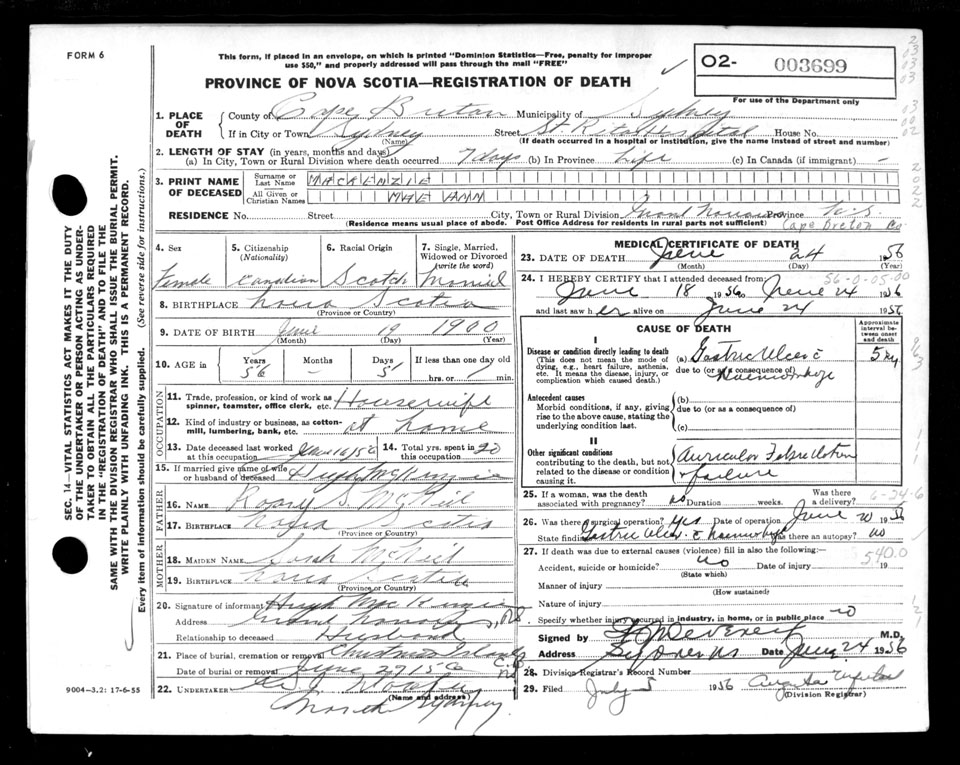 FORM 6
This form, if placed in an envelope, on which is printed "Dominion Statistics—Free, penalty for improper
use $50," and properly addressed will pass through the mail "FREE"
PROVINCE OF NOVA SCOTIA—REGISTRATION OF DEATH
02- 003699
For use of the Department only
SEC. 14—VITAL STATISTICS ACT MAKES IT THE DUTY
OF THE UNDERTAKER OR PERSON ACTING AS UNDER-
TAKER TO OBTAIN ALL THE PARTICULARS REQUIRED
IN THE "REGISTRATION OF DEATH" AND TO FILE THE
SAME WITH THE DIVISION REGISTRAR WHO SHALL ISSUE THE BURIAL PERMIT.
WRITE PLAINLY WITH UNFADING INK. THIS IS A PERMANENT RECORD.
Every item of information should be carefully supplied. (See reverse side for instructions.)
1. PLACE OF DEATH
County of Cape Breton Municipality of Sydney
If in City or Town Sydney (Name) Street St. Rita Hospital House No.
(If death occurred in a hospital or institution, give the name instead of street and number)
2. LENGTH OF STAY (in years, months and days)
(a) In City, Town or Rural Division where death occurred 7 days (b) In Province Life (c) In Canada (if immigrant) -
3. PRINT NAME OF DECEASED
Surname or Last Name MACKENZIE
All Given or Christian Names MAE ANN
RESIDENCE No. Street City, Town or Rural Division Grand Narrows Province N.S.
(Residence means usual place of abode. Post Office Address for Residents in rural parts not sufficient) Cape Breton Co
4. Sex Female
5. Citizenship (Nationality) Canadian
6. Racial Origin Scotch
7. Single, Married, Widowed or Divorced (write the word) Married
8. BIRTHPLACE Nova Scotia
(Province or Country)
9. DATE OF BIRTH June 19 1900
(Month) (Day) (Year)
10. AGE in Years 56 Months - Days 5 If less than one day old hrs. or min.
OCCUPATION
11. Trade, profession, or kind of work as spinner, teamster, office clerk, etc. Housewife
12. Kind of industry or business, as cotton-mill, lumbering, bank, etc. at home
13. Date deceased last worked at this occupation
14. Total yrs. spent in this occupation 20
15. If married give name of wife or husband of deceased Hugh McKinzie
FATHER
16. NAME S. McNeil
17. BIRTHPLACE Nova Scotia
(Province or Country)
MOTHER
18. MAIDEN NAME Sarah McNeil
19. BIRTHPLACE Nova Scotia
(Province or Country)
20. Signature of informant Hugh McKinzie
Address Grand Narrows, N.S.
Relationship to deceased Husband
21. Place of burial, cremation or removal Christmas Island C.B. N.S.
Date of burial or removal June 27/56
22. UNDERTAKER
(Name and address)
North Sydney
9004—3.2: 17-6-55
MEDICAL CERTIFICATE OF DEATH
23. DATE OF DEATH June 24 1956
(Month) (Day) (Year)
24. I HEREBY CERTIFY that I attended deceased from:
June 18 1956 to June 24 1956
56-0-05-00
and last saw her alive on June 24 1956
CAUSE OF DEATH
Approximate interval between onset and death
I
Disease or condition directly leading to death
(This does not mean the mode of dying, e.g., heart failure, asthenia, etc. It means the disease, injury, or complication which caused death.)
(a) Gastric Ulcer c̄
due to (or as a consequence of)
Haemorrhage
Antecedent causes
Morbid conditions, if any, giving rise to the above cause, stating the underlying condition last.
(b)
due to (or as a consequence of)
(c)
II
Other significant conditions
contributing to the death, but not related to the disease or condition causing it.
Auricular Fibrillation
+ failure
25. If a woman, was the death associated with pregnancy? No Duration weeks. Was there a delivery?
6-24-6
26. Was there a surgical operation? Yes Date of operation June 20 1956
State findings Gastric Ulcer c̄ Haemorrhage Was there an autopsy? no
27. If death was due to external causes (violence) fill in also the following:
5400
Accident, suicide or homicide? no 19
(State which)
Manner of injury
(How sustained)
Nature of injury
Specify whether injury occurred in industry, in home, or in public place no
Signed by M.D.
Address Sydney N.S. Date 24 1956
28. Division Registrar's Record Number
29. Filed July 5 1956
(Division Registrar)